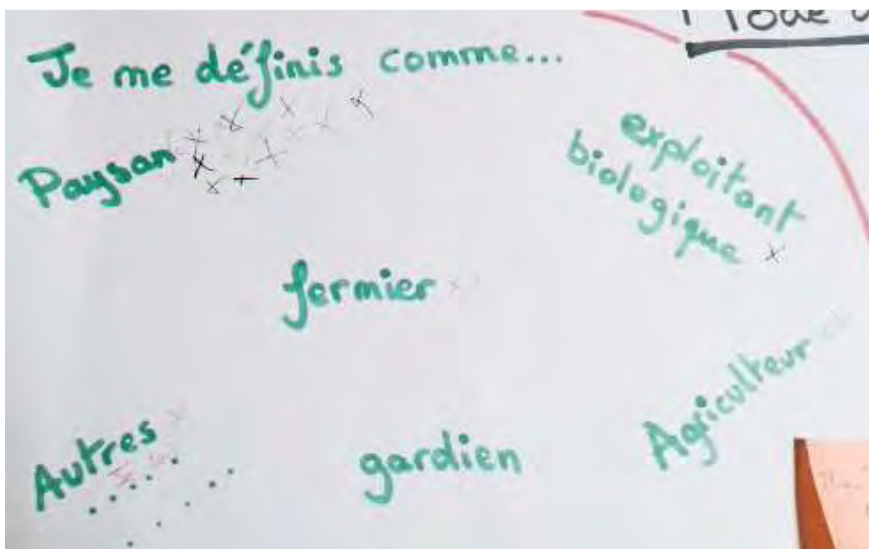 Je me définis comme...
Paysan
exploitant
biologique
fermier
Agriculteur
Autres
gardien